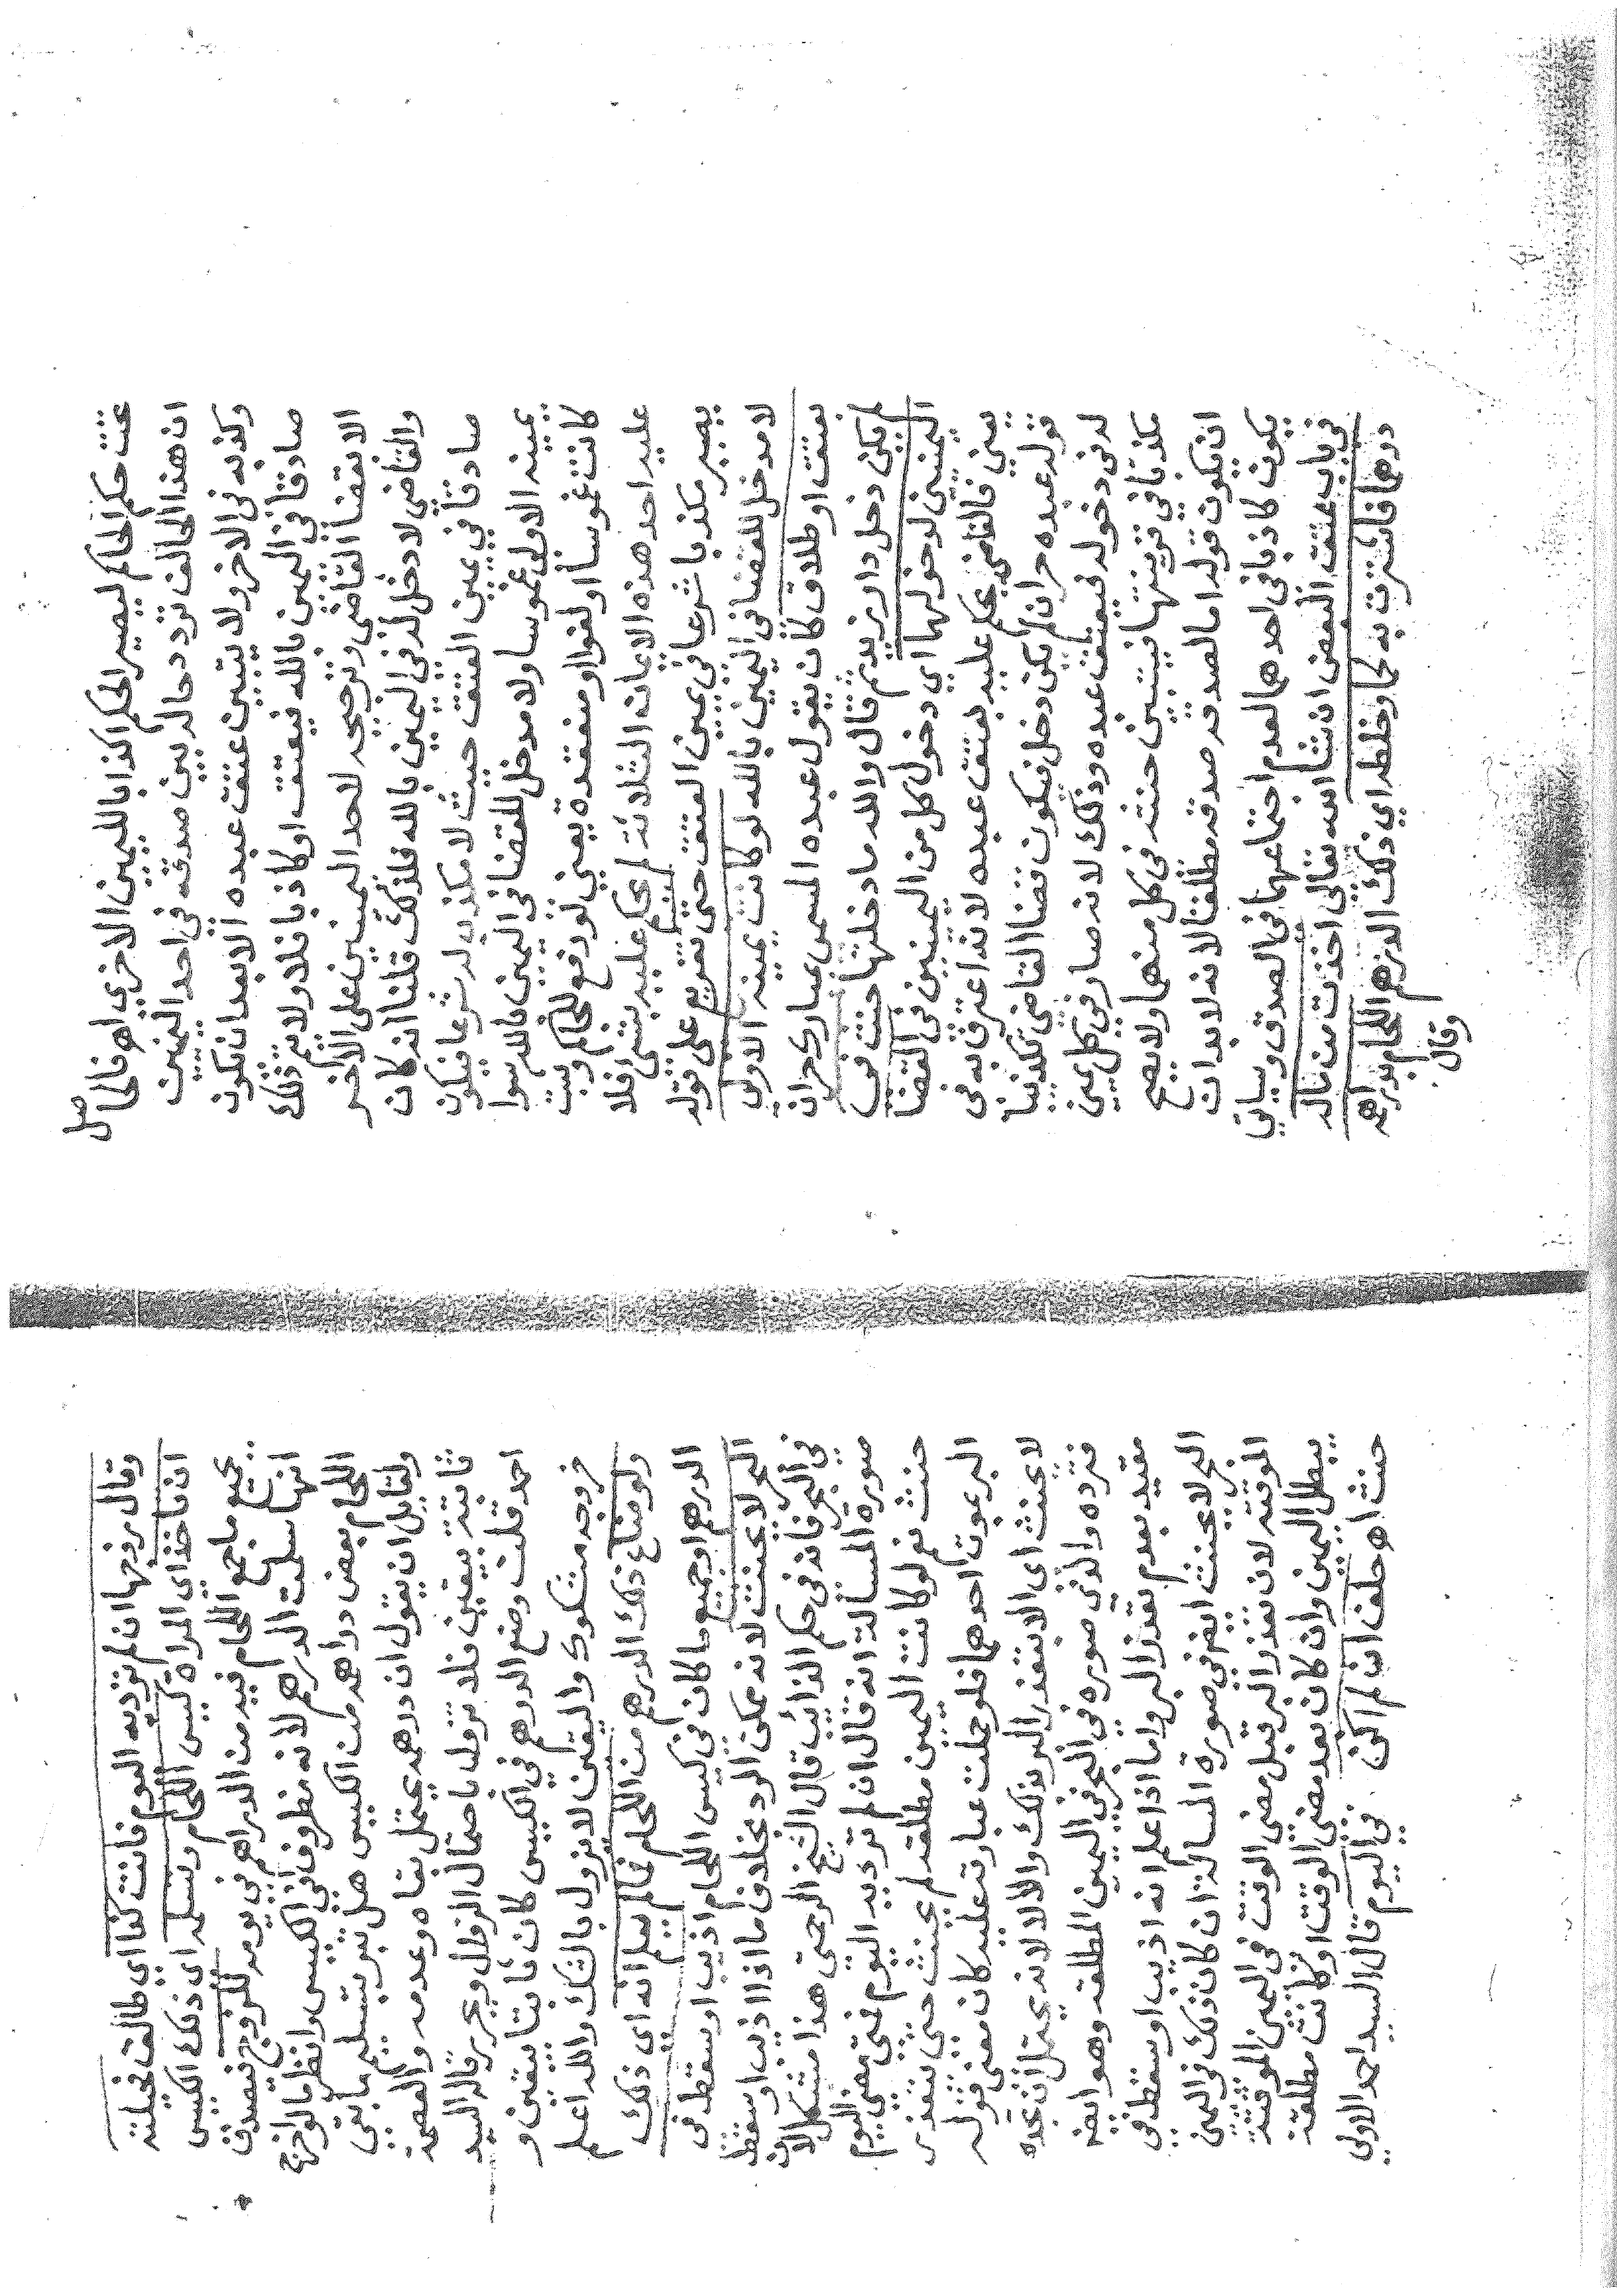 عتت حكم الحاكم ليصير الحكم اكذابا لليمين الاخرى اهـ فالحاصل
ان هذا الحالف تردد حاله بين صدقه في احد اليمينين
وكذبه في الاخر ولا يتبين عتق عبده الا بعد ان تكون
صادقا في اليمين بالله فيعتق او كاذبا فلا ولا يتم ذلك
الا بقضأ القاضي وترجيحه لاحد اليمينين على الاخر
والقاضي لا دخل له في اليمين بالله فلذلك قلنا انه كان
صادقا في يمين العتق حيث لا مكذب له شرعا فيكون
يمينه الاولى غموسا ولا مدخل للقضا في اليمين بالله سوا
كانت غموسا او لغوا او منعقدة يعني لو رفع للحاكم وثبت
عليه احد هذه الايمان الثلاثة لم يحكم عليه بشي فلا
يصير مكذبا شرعا في يمين العتق حتى تفريع على قوله
لا مدخل للقضا في اليمين بالله لو كانت يمينه الاولى
بعتق او طلاق كان يقول عبده المسمى مبارك حر ان
لم يكن دخل دار زيد ثم قال والله ما دخلتها حنث في
اليمينين لدخولها اي دخول كل من اليمينين في القضا
يعني فالقاضي يحكم عليه بعتق عبده لانه اعترف به في
قوله عبده حر ان لم يكن دخل فيكون قضا القاضي تكذيبا
له في دخوله فيعتق عبده وذلك لانه صار في كل يمين
مكذبا في قرينتها فيتبين حنثه في كل منهما ولا يصح
ان يكون قوله اما لصدقه صدقه مطلقا لانه لا بد ان
يكون كاذبا في احدهما لعدم اجتماعهما في الصدق وسياتي
في باب عتق البعض ان شا الله تعالى اخذت من ماله
درهما فاشترت به لحما وخلطه اي ذلك الدرهم اللحام بدراهمه
وقال
وقال زوجها ان لم ترديه اليوم فانت كذا اي طالق فحيلته
ان تاخذ اي المراة كيس اللحام وتسلمه اي ذلك الكيس
بجميع ما جمع اللحام فيه من الدراهم في يومه للزوج فيصدق
انها سلمت الدرهم لانه مظروف في الكيس وانظر ما لو خرج
اللحام بعض دراهمه من الكيس هل تبر بتسليم ما بقي
ولقايل ان يقول ان درهمه يحتمل بقاه وعدمه والعصمة
ثابتة بيقين فلا تزول باحتمال الزوال ويحرر قاله السيد
احمد قلت وضع الدرهم في الكيس كان ثابتا بيقين و
خروجه مشكوك واليقين لا يزول بالشك والله اعلم
ولو ضاع ذلك الدرهم من اللحام فما لم يعلم انه اي ذلك
الدرهم او جميع ما كان في كيس اللحام اذيب او سقط في
البحر لا يحنث لانه يمكن الرد بخلاف ما اذا اذيب او سقط
في البحر فانه في حكم الذائب قال الشيخ الرحمتي هذا مشكل لان
صورة المسألة انه قال ان لم ترديه اليوم فمتى مضى اليوم
حنث نعم لو كانت اليمين مطلقة لم يحنث حتى يتعذر
البر بموت احدهما فلو حملت عبارته عليه كان معنى قوله
لا يحنث اي الا بتعذر البر بذلك والا لا لانه يحتمل ان تجده
فترده والذي صوره في البحر في اليمين المطلقة وهو ايضا
مقيد بعدم تعذر البر واما اذا علم انه اذيب او سقط في
البحر لا يحنث ايضا في صورة المسألة ان كان ذلك في اليمين
الموقتة لان تعذر البر قبل مضي الوقت في اليمين الموقتة
يبطل اليمين وان كان بعد مضي الوقت او كانت مطلقة
حنث اهـ حلف ان لم اكن في اليوم قال السيد احمد الاولى